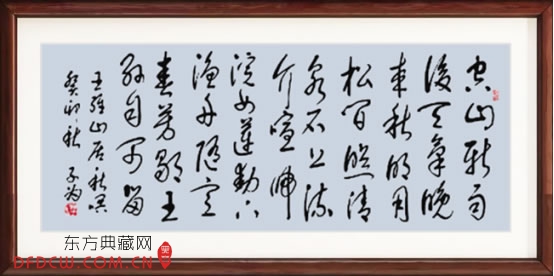 空山新雨
後天氣晚
来秋明月
松间照清
泉石上流
竹喧歸
浣女莲動下
渔舟随意
春芳歇王
孙自可留
王维山居秋暝
癸卯秋 子为
东方典藏网
DFDCW.COM.CN